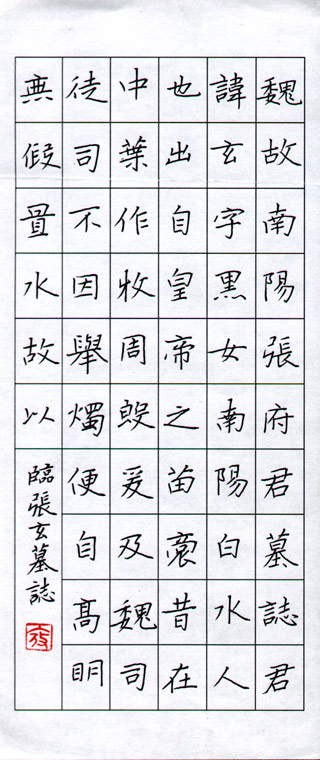 魏故南陽張府君墓誌君
諱玄字黑女南陽白水人
也出自皇帝之苗裔昔在
中葉作牧周殷爰及魏司
徒司不因舉燭便自髙眀
無假置水故以
臨張玄墓誌